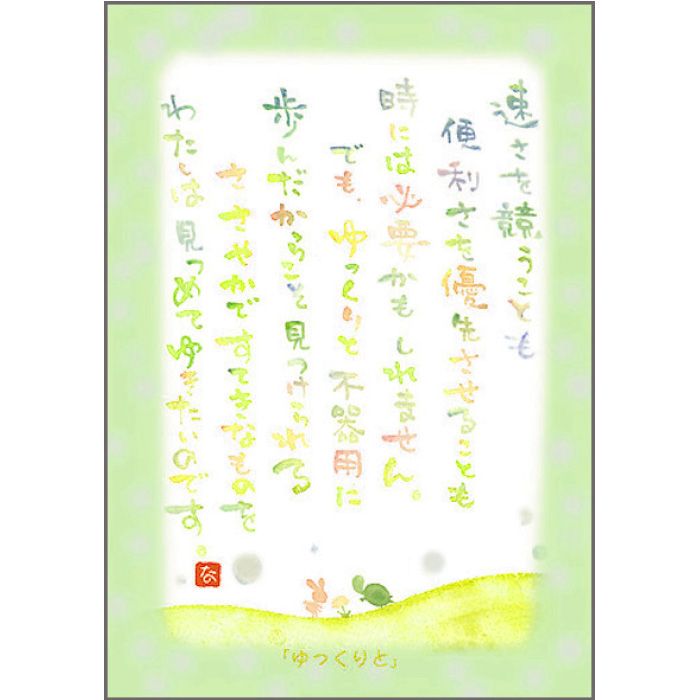 速さを競うことも
便利さを優先させることも
時には必要かもしれません。
でも、ゆっくりと不器用に
歩んだからこそ見つけられる
ささやかですてきなものを
わたしは見つめてゆきたいのです。
な
「ゆっくりと」